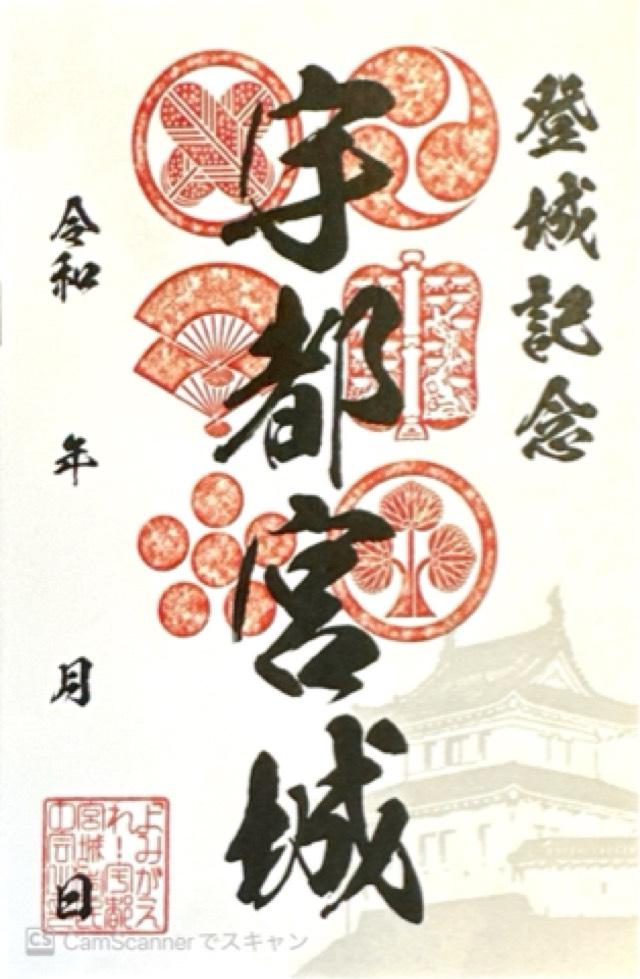 登城記念
宇都宮城
令和 年 月 日
よみがえ
れ!宇都
宮城
CS CamScannerでスキャン